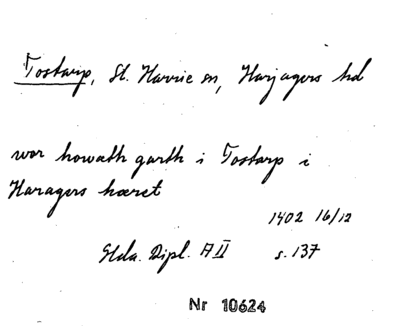 Tostarp, St. Harrie sn, Harjagers hd
wor howath garth i Tostarp i
Haragers hæret
1402 16/12
Glda. Dipl. A II s. 137
Nr 10624